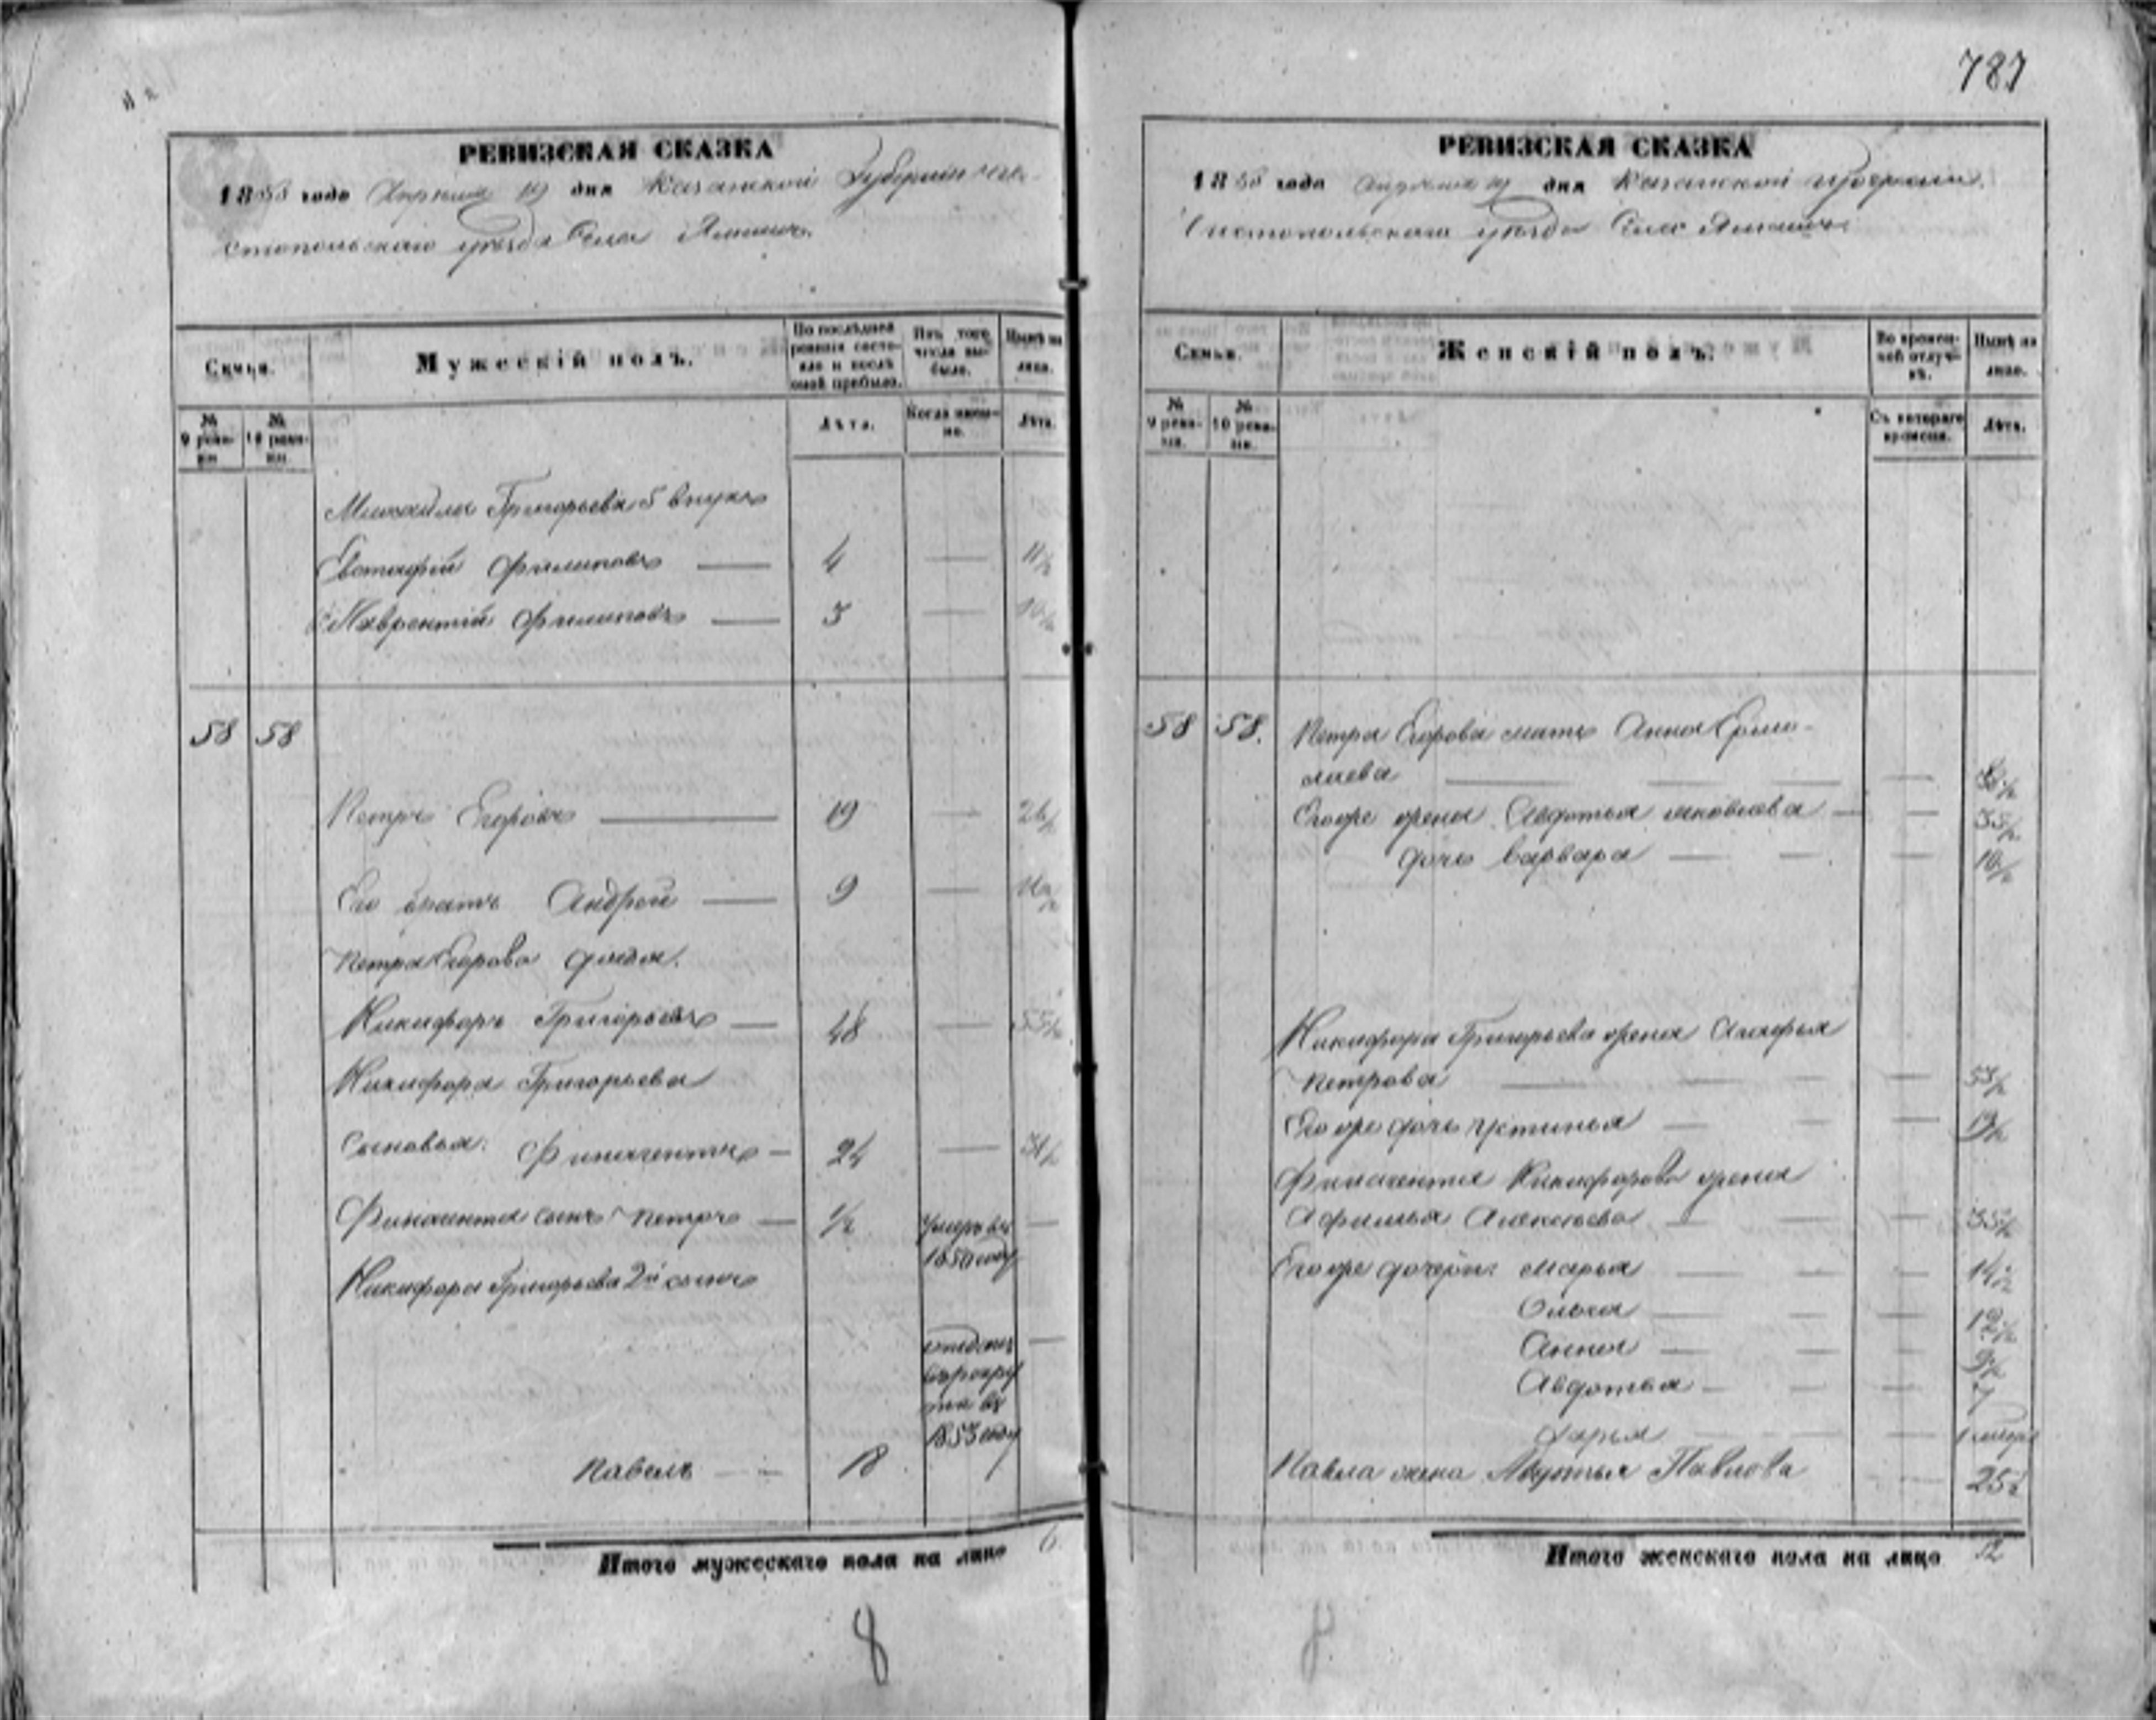 787
РЕВИЗСКАЯ СКАЗКА
1858 года Апреля 19 дня Казанской Губернии Чи-
стопольскаго уезда Села
Семьи.
Мужескій полъ.
По последней ревизіи состояло и после оной прибыло.
Изъ того числа выбыло.
Ныне на лицо.
№ 9 ревизіи.
№ 10 ревизіи.
Лѣта.
Когда именно.
Лѣта.
Михайлы Григорьева 5 внукъ
Евстафій Филиповъ — 4 — 11½
Лаврентій Филиповъ — 3 — 10½
58 58
Петръ Егоровъ — 19 — 26½
Его братъ Андрей — 9 —
Петра Егорова дядя.
Никифоръ Григорьевъ — 48 — 55½
Никифора Григорьева
Сыновья: Финагентъ — 24 — 31½
Финагента сынъ Петръ — ½ умеръ въ 1850 году —
Никифора Григорьева 2й сынъ
Павелъ — 18 отданъ въ рекруты въ 1853 году —
Итого мужескаго пола на лицо 6
8
РЕВИЗСКАЯ СКАЗКА
1858 года Апреля 19 дня Казанской губерніи
Чистопольскаго уезда Села
Семьи.
Женскій полъ.
Во временной отлучкѣ.
Ныне на лицо.
№ 9 ревизіи.
№ 10 ревизіи.
Съ котораго времени.
Лѣта.
58 58. Петра Егорова мать Анна Ермо-
лаева — —
Егоже жена Авдотья Яковлева — — 35½
дочь Варвара — — 10½
Никифора Григорьева жена Агафья
Петрова — — 53½
Егоже дочь Устинья — — 19½
Финагента Никифорова жена
Афимья Алексеева — — 35½
Егоже дочери: Марья — — 14½
Ольга — — 12½
Анна — — 9½
Авдотья — — 7
Дарья — —
Павла жена Авдотья Павлова — 25½
Итого женскаго пола на лицо 12
8